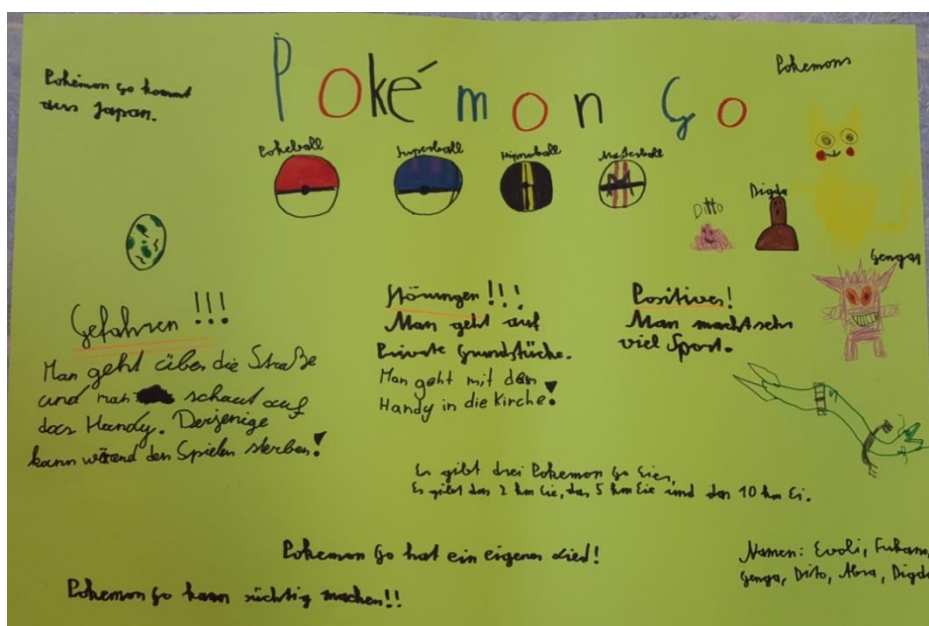 Pokémon Go
Pokémon Go kommt
aus Japan.
Pokemons
Pokeball
Superball
Masterball
Ditto
Digda
Gengar
Gefahren !!!
Man geht über die Straße
und man schaut auf
das Handy. Derjenige
kann wärend den Spielen sterben!
Störungen !!!
Man geht auf
Private Grundstücke.
Man geht mit den
Handy in die Kirche!
Positives!
Man macht sehr
viel Sport.
Es gibt drei Pokemon Go Eier,
Es gibt das 2 km Eie, das 5 km Eie und das 10 km Ei.
Pokemon Go hat ein eigenes Lied!
Pokemon Go kann süchtig machen!!
Namen: Evoli, Fukano,
Genga, Dito, Abra, Digda